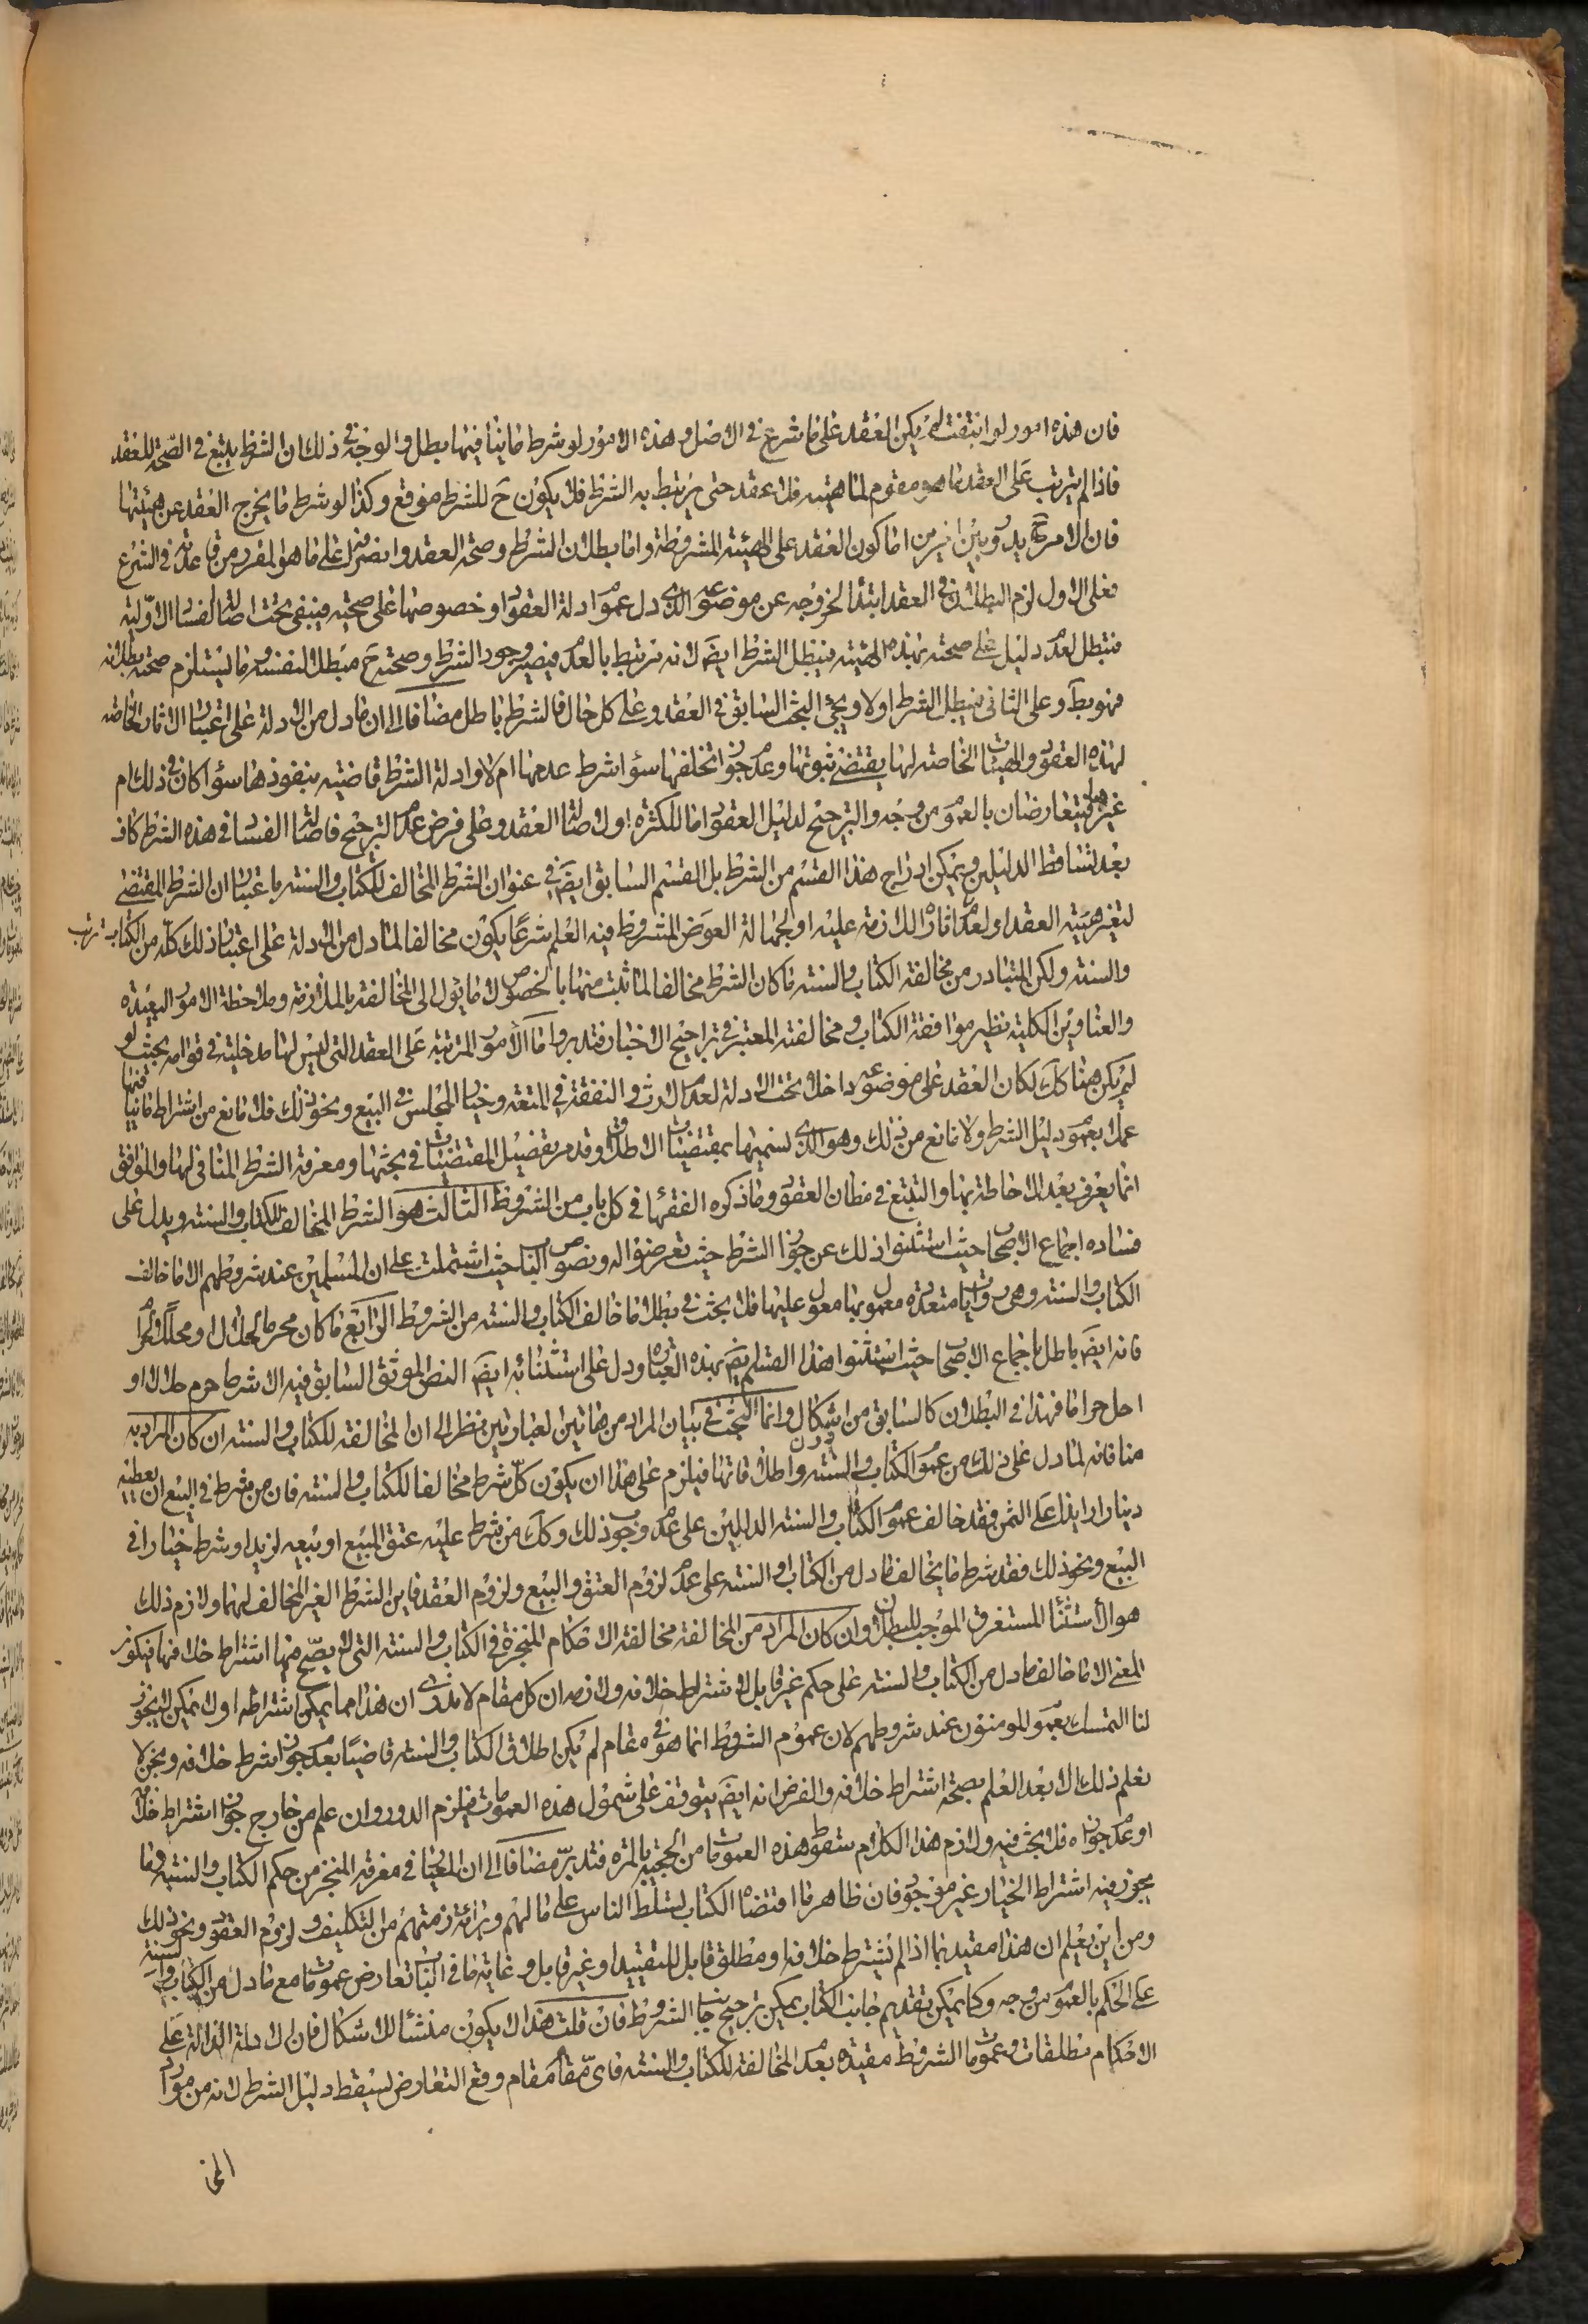 فان هذه امور لو انتفت لم يكن العقد على ما شرع في الاصل وهذه الامور لو شرط ما ينافيها بطل والوجه في ذلك ان الشرط يتبع في الصحة للعقد
فاذا لم يترتب على العقد ما هو مقوم لماهيته فلا عقد حتى يرتبط به الشرط فلا يكون ح للشرط موقع وكذا لو شرط ما يخرج العقد عن هيئتها
فان الامر ح يدور بين امرين اما كون العقد على الهيئة المشروطة واما بطلان الشرط وصحة العقد وانصرافه على ما هو المقرر من قاعدته في الشرع
فعلى الاول لزم البطلان في العقد ابتداء لخروجه عن موضوعه الذي دل عموم ادلة العقود او خصوصها على صحته فيبقى تحت اصالة الفساد الاولية
فتبطل لعدم دليل على صحته بهذه الهيئة فيبطل الشرط ايضا لانه مرتبط بالعقد فيصير وجود الشرط وصحته ح مبطلا لنفسه وما يستلزم صحته بطلانه
فهو بط وعلى الثاني فيبطل الشرط اولا ويجئ البحث السابق في العقد وعلى كل حال فالشرط باطل مضافا الى ان ما دل من الادلة على اعتبار الاثار الخاصة
لهذه العقود والهيئات الخاصة لها يقتضي ثبوتها وعدم جواز تخلفها سواء شرط عدمها ام لا وادلة الشرط قاضية بنفوذها سواء كان في ذلك ام
غيرها فيتعارضان بالعموم من وجه والترجيح لدليل العقود اما للكثرة او لاصالة العقد وعلى فرض عدم الترجيح فاصالة الفساد في هذه الشرط كاف
بعد تساقط الدليلين ويمكن ادراج هذا القسم من الشرط بل القسم السابق ايضا في عنوان الشرط المخالف للكتاب والسنة باعتبار ان الشرط المقتضي
لتغير هيئة العقد او لعدم اثاره اللازمة عليه او لجهالة العوض المشروط فيه العلم شرعا يكون مخالفا لما دل من الادلة على اعتبار ذلك كله من الكتاب ترتب
والسنة ولكن المتبادر من مخالفة الكتاب والسنة ما كان الشرط مخالفا لما ثبت منهما بالخصوص لا ما يؤل الى المخالفة بالملازمة وملاحظة الامور البعيدة
والعناوين الكلية نظير موافقة الكتاب ومخالفته المعتبر في تراجيح الاخبار فتدبر واما الامور المترتبة على العقد التي ليس لها مدخلية في قوامه بحيث لو
لم يكن هناك لكان العقد على موضوعه داخلا تحت الادلة لعدم الارث والنفقة في المتعة وخيار المجلس في البيع ونحو ذلك فلا مانع من اشتراط ما ينافيها
عملا بعموم دليل الشرط ولا مانع من ذلك وهو الذي نسميها بمقتضيات الاطلاق وقد مر تفصيل المقتضيات في بحثها ومعرفة الشرط المنافي لها والموافق
انما يعرف بعد الاحاطة بها والتتبع في مظان العقود وما ذكره الفقهاء في كل باب من الشروط الثالث هو الشرط المخالف للكتاب والسنة ويدل على
فساده اجماع الاصحاب حيث استثنوا ذلك عن جواز الشرط حيث تعرضوا له ونصوص الباب حيث اشتملت على ان المسلمين عند شروطهم الا ما خالف
الكتاب والسنة وهي روايات متعددة معمول بها معول عليها فلا بحث في بطلان ما خالف الكتاب والسنة من الشروط الرابع ما كان محرما لحلال او محللا لحرام
فانه ايضا باطل باجماع الاصحاب حيث استثنوا هذا القسم ايضا بهذه العبارة ودل على استثنائه ايضا النص الموثق السابق فيه الا شرطا حرم حلالا او
احل حراما فهذا في البطلان كالسابق من دون اشكال وانما البحث في بيان المراد من هاتين العبارتين نظرا الى ان المخالفة للكتاب والسنة ان كان المراد به
منافاته لما دل على ذلك من عموم الكتاب والسنة واطلاقاتها فيلزم على هذا ان يكون كل شرط مخالفا للكتاب والسنة فان من شرط في البيع ان يعطيه
دينارا زايدا على الثمن فقد خالف عموم الكتاب والسنة الدالين على عدم وجوب ذلك وكذا من شرط عليه عتق المبيع او بيعه لزيد او شرط خيارا في
البيع ونحو ذلك فقد شرط ما يخالف ما دل من الكتاب او السنة على عدم لزوم العتق والبيع ولزوم العقد فاين الشرط الغير المخالف لهما ولازم ذلك
هو الاستثناء المستغرق الموجب للبطلان وان كان المراد من المخالفة مخالفة الاحكام المنجزة في الكتاب والسنة التي لا يصح منها اشتراط خلافها فيكون
المعنى الا ما خالف ما دل من الكتاب والسنة على حكم غير قابل لاشتراط خلافه ولازمه ان كل مقام لا ندري ان هذا مما يمكن اشتراطه او لا يمكن لا يجوز
لنا التمسك بعموم المؤمنون عند شروطهم لان عموم الشروط انما هو في مقام لم يكن اطلاق الكتاب والسنة قاضيا بعدم جواز شرط خلافه ونحن لا
نعلم ذلك الا بعد العلم بصحة اشتراط خلافه والفرض انه ايضا يتوقف على شمول هذه العمومات فيلزم الدور وان علم من خارج جواز اشتراط خلافه
او عدم جوازه فلا بحث فيه ولازم هذا الكلام سقوط هذه العمومات من الحجية بالمرة فتدبر مضافا الى ان المعيار في معرفة المنجز من حكم الكتاب والسنة وما
يجوز فيه اشتراط الخيار غير موجود فان ظاهر ما اقتضاه الكتاب تسلط الناس على مالهم وبرائة ذمتهم من التكليف ولزوم العقود ونحو ذلك
ومن اين يعلم ان هذا مقيد بما اذا لم يشترط خلافه او مطلق قابل للتقييد او غير قابل وغاية ما في الباب تعارض عمومات ما مع ما دل من الكتاب والسنة
على الحكم بالعموم من وجه وكما يمكن تقديم جانب الكتاب يمكن ترجيح جانب الشروط فان قلت هذا لا يكون منشئا للاشكال فان الادلة الدالة على
الاحكام مطلقات وعمومات الشروط مقيدة بعدم المخالفة للكتاب والسنة فاي مقام مقام وقع التعارض ليسقط دليل الشرط لانه من موارد
المخا